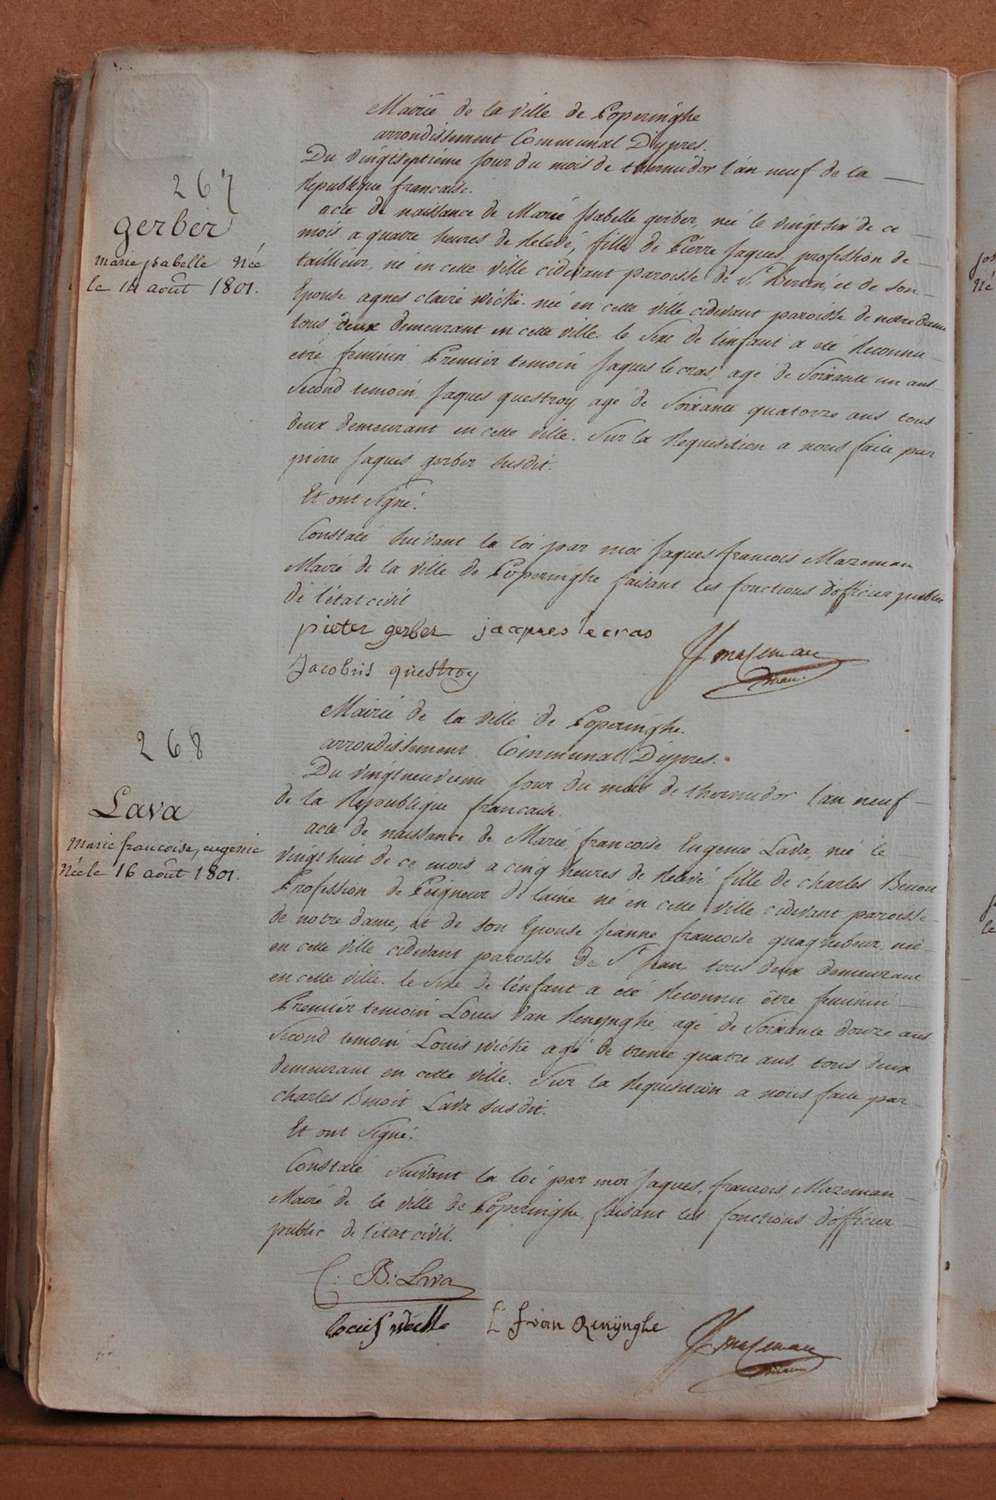 Mairie de la ville de Poperinghe
arrondissement Communal D'ypres.
Du vingtseptieme jour du mois de thermidor l'an neuf de la
Republique francaise.
267
gerber
marie jsabelle Née
le 14 août 1801.
acte de naissance de Marie Jsabelle gerber, née le vingt six de ce
mois a quatre heures de Relevé, fille de Pierre Jaques, profession de
tailleur, né en cette ville cidevant paroisse de St. Bertin, et de son
Epouse agnes claire wické née en cette ville cidevant paroisse de notre dame
tous deux demeurant en cette ville. le Sexe de l'enfant a été Reconnu
etré feminin Premier temoin Jaques le cras agé de Soixante un ans
Second temoin Jaques questroy agé de Soixante quatorze ans tous
deux demeurant en cette ville. Sur la Requisition a nous faite par
pierre Jaques gerber Susdit.
Et ont Signé.
Constaté Suivant la loi par moi Jaques francois Mazeman
Maire de la ville de Poperinghe faisant les fonctions d'officier public
de l'état civil
pieter gerber jacques le cras
Jacobus questroy
JJ mazeman
maire
268
Lava
marie francoise, eugenie
Née le 16 août 1801.
Mairie de la ville de Poperinghe.
arrondissement Communal D'ypres.
Du vingt neuvieme jour du mois de thermidor l'an neuf
de la Republique francaise.
acte de naissance de Marie francoise Eugenie Lava, née le
vingt huit de ce mois a cinq heures de Relevé fille de charles Benoit
Profession de Peigneur de laine né en cette ville cidevant paroisse
de notre dame, et de son Epouse jeanne francoise quaghebeur née
en cette ville cidevant paroisse de St. Jean tous deux demeurant
en cette ville. le Sexe de l'enfant a été Reconnu être feminin
Premier temoin Louis Van Renynghe agé de Soixante douze ans
Second temoin Louis wické agé de trente quatre ans tous deux
demeurant en cette ville. Sur la Requisition a nous faite par
charles Benoit Lava Susdit.
Et ont Signé.
Constaté Suivant la loi par moi Jaques, francois Mazeman
Maire de la ville de Poperinghe faisant les fonctions d'officier
public de l'état civil.
C: B: Lava
L: J van Renÿnghe
JJ mazeman
maire